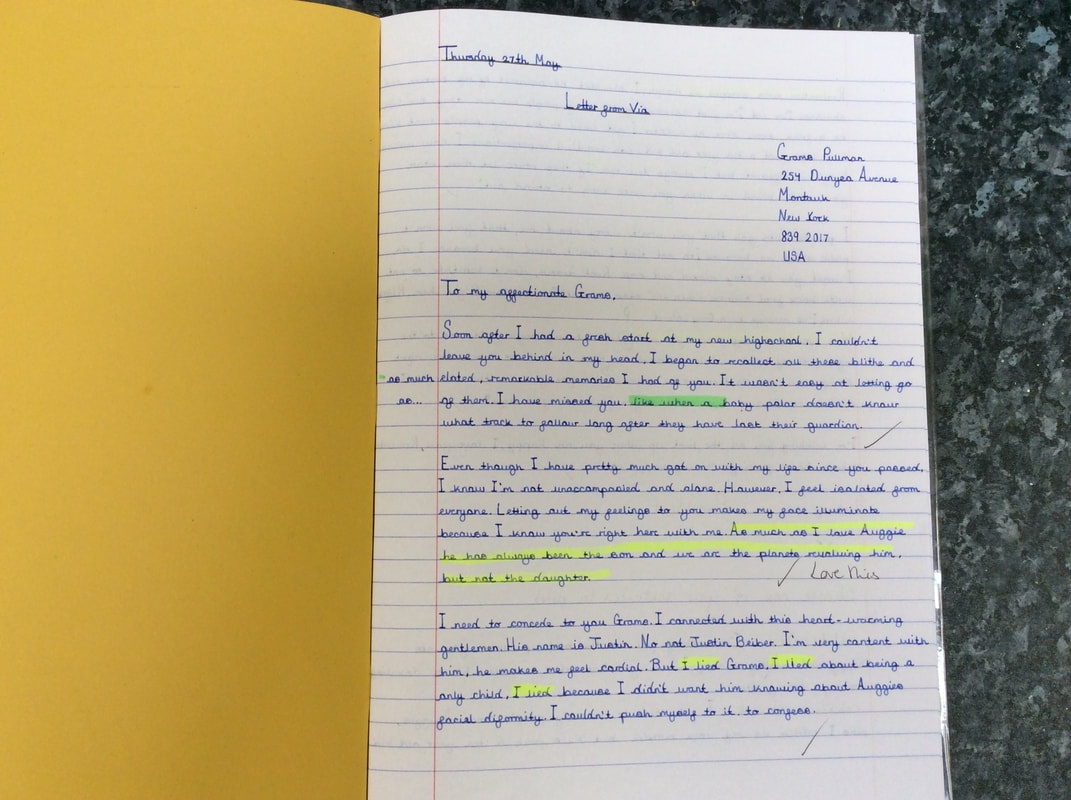 Thursday 27th May
Letter from Via
Grams Pullman
254 Dunyea Avenue
Montauk
New York
839 2017
USA
To my affectionate Grams,
Soon after I had a fresh start at my new highschool, I couldn't
leave you behind in my head. I began to recollect all these blithe and
as much elated, remarkable memories I had of you. It wasn't easy at letting go
as... of them. I have missed you, like when a baby polar doesn't know
what track to follow long after they have lost their guardian.
Even though I have pretty much got on with my life since you passed,
I know I'm not unaccompanied and alone. However, I feel isolated from
everyone. Letting out my feelings to you makes my face illuminate
because I know you're right here with me. As much as I love Auggie
he has always been the son and we are the planets revolving him,
but not the daughter.
Love this
I need to concede to you Grams. I connected with this heart-warming
gentlemen. His name is Justin. No not Justin Beiber. I'm very content with
him, he makes me feel cordial. But I lied Grams, I lied about being a
only child, I lied because I didn't want him knowing about Auggies
facial diformity. I couldn't push myself to it, to confess.